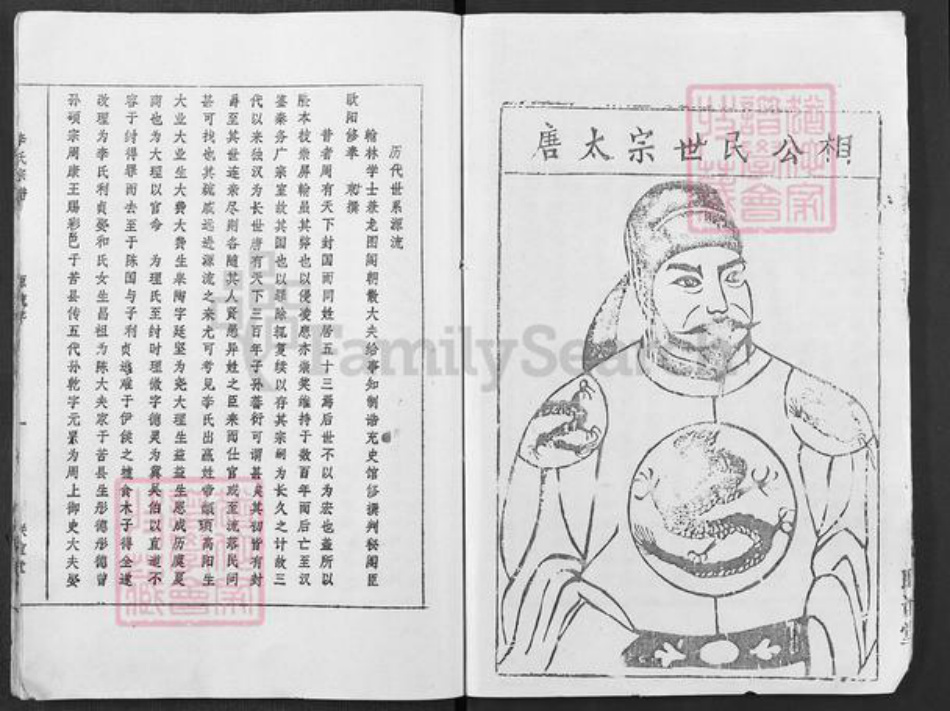 相公民世宗太唐
历代世系源流
翰林学士兼龙图阁朝散大夫给事知制诰充史馆修撰判秘阁臣
欧阳修奉 敕撰
昔者周有天下封国而同姓居五十三焉后世不以为宏也盖所以
代以来独汉为长世唐有天下三百年子孙蕃衍可谓甚矣其初皆有封
爵至其世连亲尽则各随其人贤愚异姓之臣来而仕官或至流落民间
甚可找也其疏戚远近源流之来尤可考见李氏出嬴姓帝颛顼高阳生
大业大业生大费大费生皋陶字延坚为尧大理生益益生恩成历虞夏
商也为大理以官命 为理氏至纣时理徵字德灵为翼吴伯以直道不
容于纣得罪而去至于陈国与子利贞逃难于伊侯之墟食木子得全遂
改理为李氏利贞娶和氏女生昌祖为陈大夫家于苦县生彤德彤德曾
孙硕宗周康王赐彩邑于苦县传五代孙乾字元果为周上御史大夫娶
李氏宗谱
FamilySearch